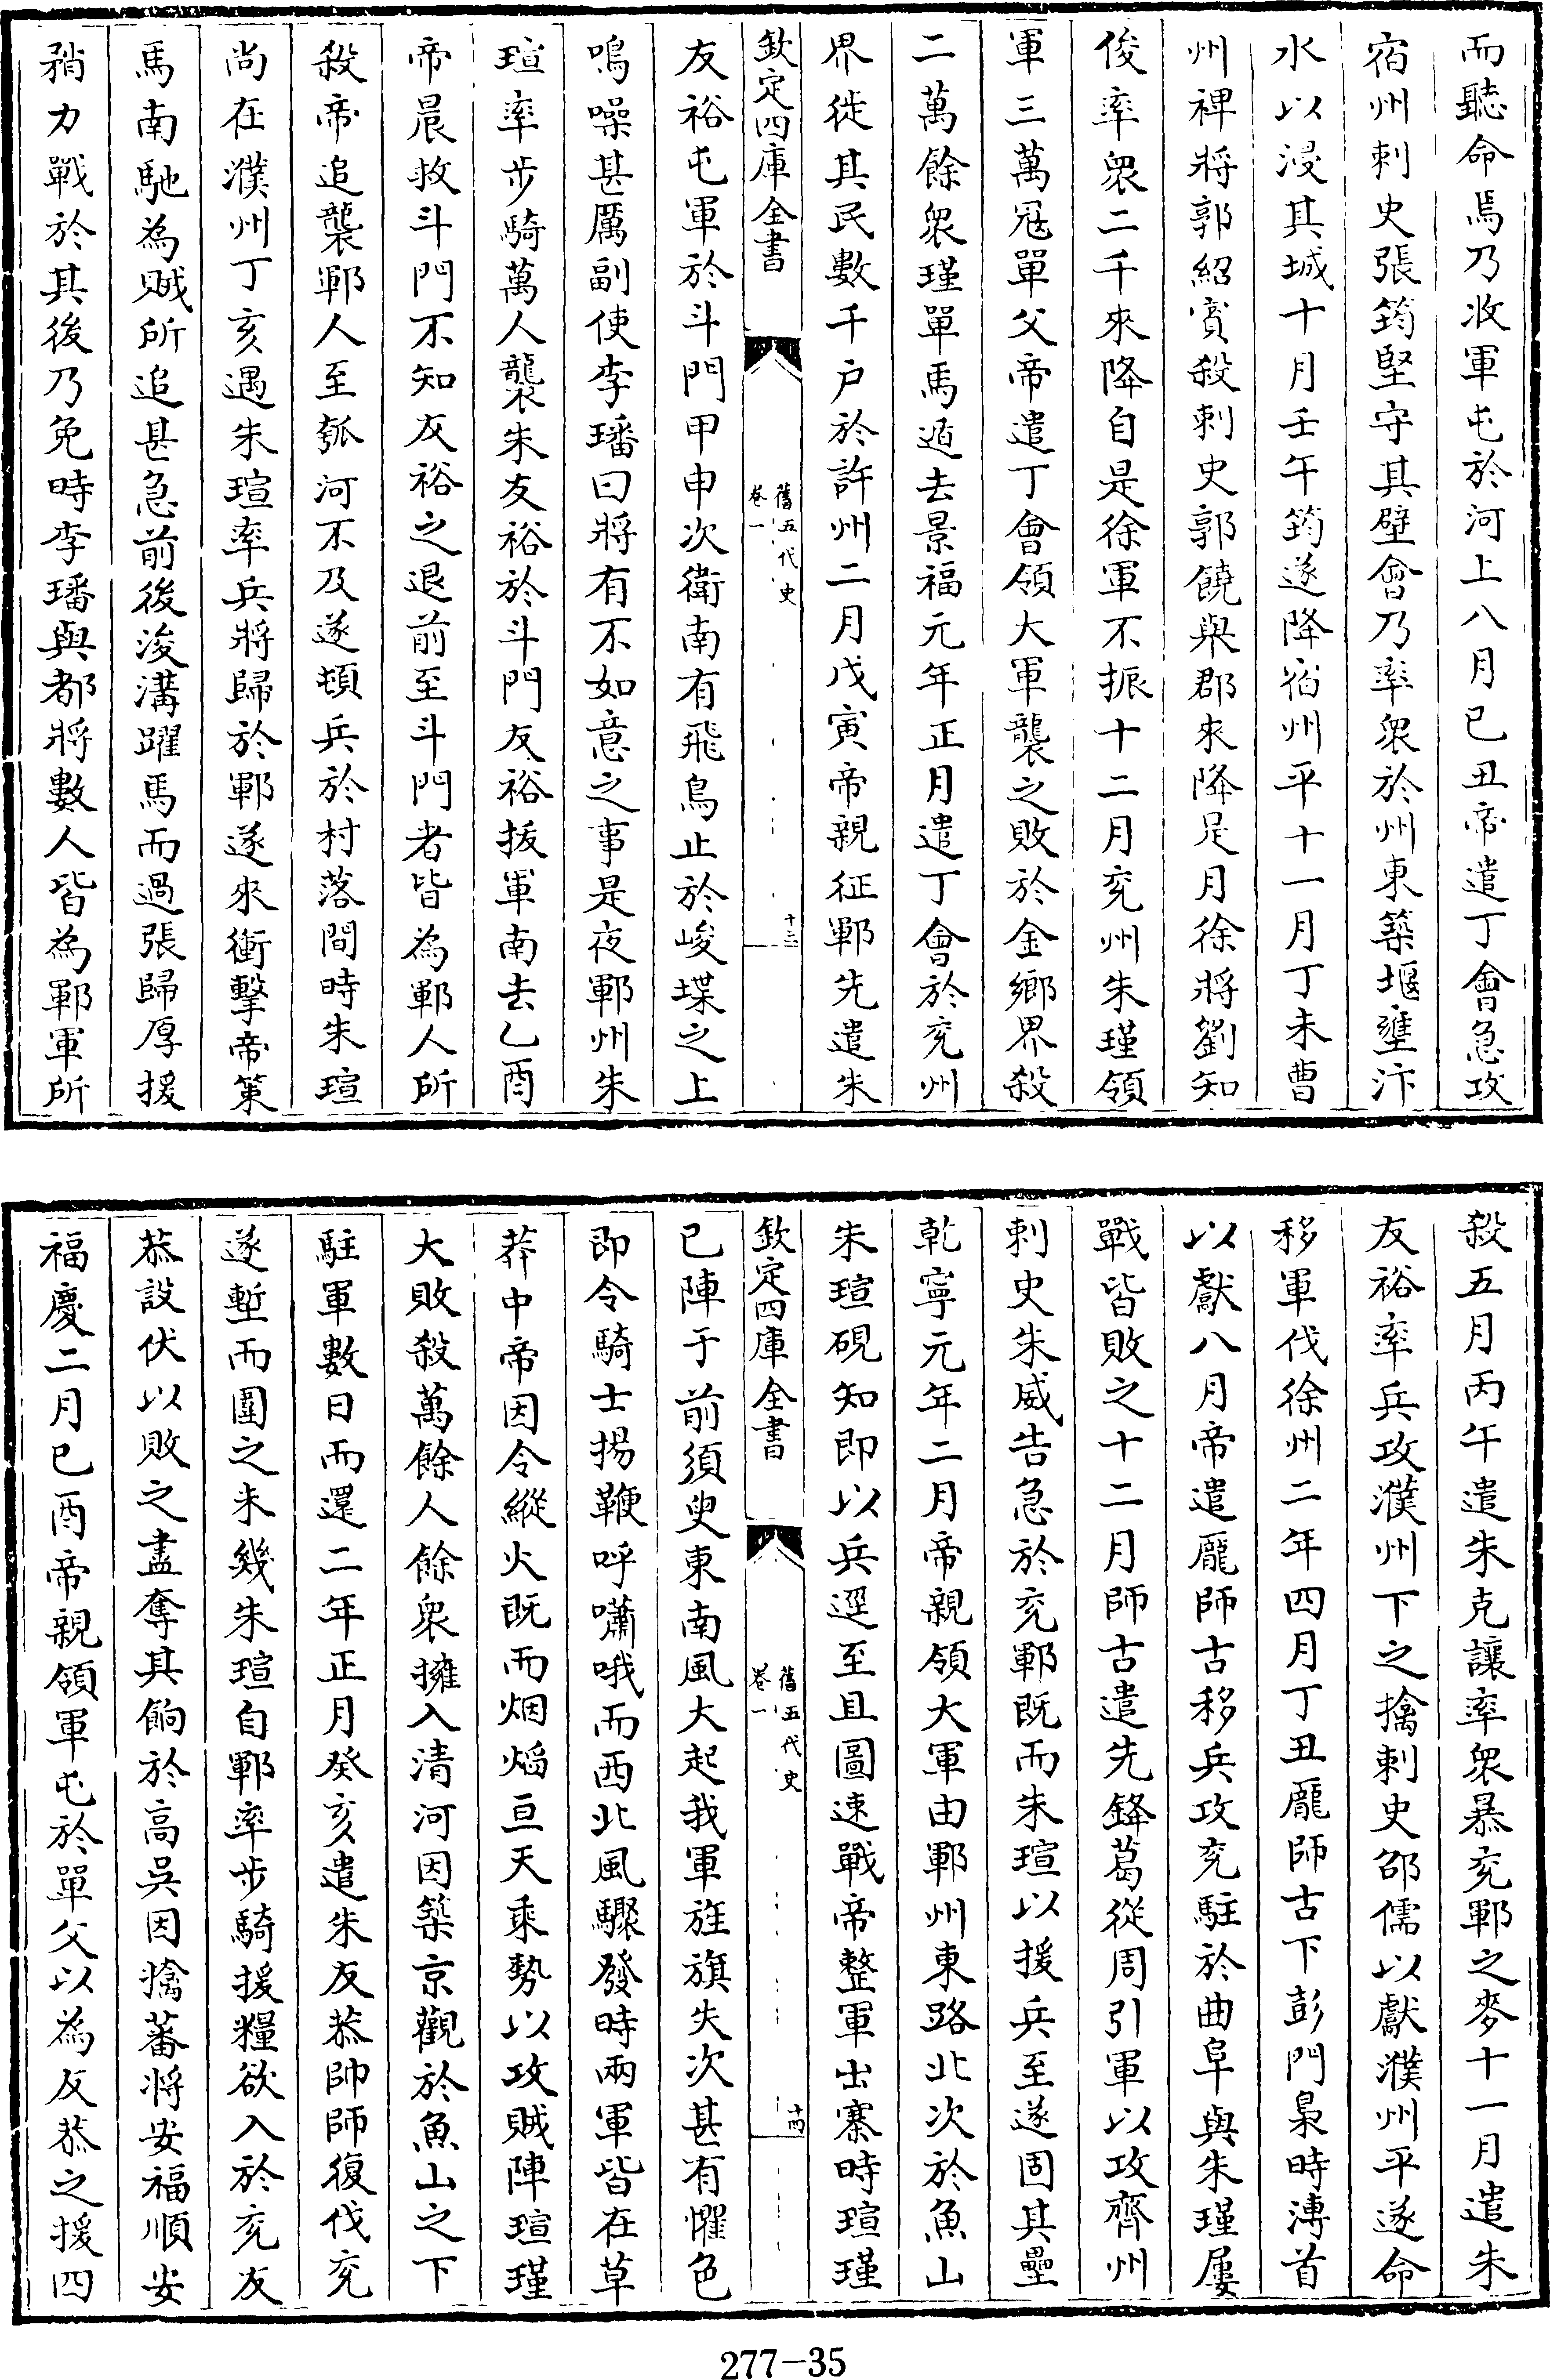 而聽命焉乃收軍屯於河上八月己丑帝遣丁會急攻
宿州刺史張筠堅守其壁會乃率衆於州東築堰壅汴
水以浸其城十月壬午筠遂降宿州平十一月丁未曹
州裨將郭紹賓殺刺史郭饒與郡來降是月徐將劉知
俊率衆二千來降自是徐軍不振十二月兖州朱瑾領
軍三萬冦單父帝遣丁會領大軍襲之敗於金鄉界殺
二萬餘衆瑾單馬遁去景福元年正月遣丁會於兖州
界徙其民數千戶於許州二月戊寅帝親征鄆先遣朱
欽定四庫全書
舊五代史
卷一
十三
友裕屯軍於斗門甲申次衛南有飛鳥止於峻堞之上
鳴噪甚厲副使李璠曰將有不如意之事是夜鄆州朱
瑄率步騎萬人襲朱友裕於斗門友裕拔軍南去乙酉
帝晨救斗門不知友裕之退前至斗門者皆為鄆人所
殺帝追襲鄆人至瓠河不及遂頓兵於村落間時朱瑄
尚在濮州丁亥遇朱瑄率兵將歸於鄆遂來衝擊帝策
馬南馳為賊所追甚急前後浚溝躍馬而過張歸厚援
矟力戰於其後乃免時李璠與都將數人皆為鄆軍所
殺五月丙午遣朱克讓率衆暴兖鄆之麥十一月遣朱
友裕率兵攻濮州下之擒刺史邵儒以獻濮州平遂命
移軍伐徐州二年四月丁丑龐師古下彭門梟時溥首
以獻八月帝遣龐師古移兵攻兖駐於曲阜與朱瑾屢
戰皆敗之十二月師古遣先鋒葛從周引軍以攻齊州
刺史朱威告急於兖鄆既而朱瑄以援兵至遂固其壘
乾寧元年二月帝親領大軍由鄆州東路北次於魚山
朱瑄硯知即以兵逕至且圖速戰帝整軍出寨時瑄瑾
欽定四庫全書
舊五代史
卷一
十四
已陣于前須臾東南風大起我軍旌旗失次甚有懼色
即令騎士揚鞭呼嘯哦而西北風驟發時兩軍皆在草
莽中帝因令縱火既而烟熖亘天乘勢以攻賊陣瑄瑾
大敗殺萬餘人餘衆擁入清河因築京觀於魚山之下
駐軍數日而還二年正月癸亥遣朱友恭帥師復伐兖
遂塹而圍之未幾朱瑄自鄆率步騎援糧欲入於兖友
恭設伏以敗之盡奪其餉於高吳因擒蕃將安福順安
福慶二月己酉帝親領軍屯於單父以為友恭之援四
277-35